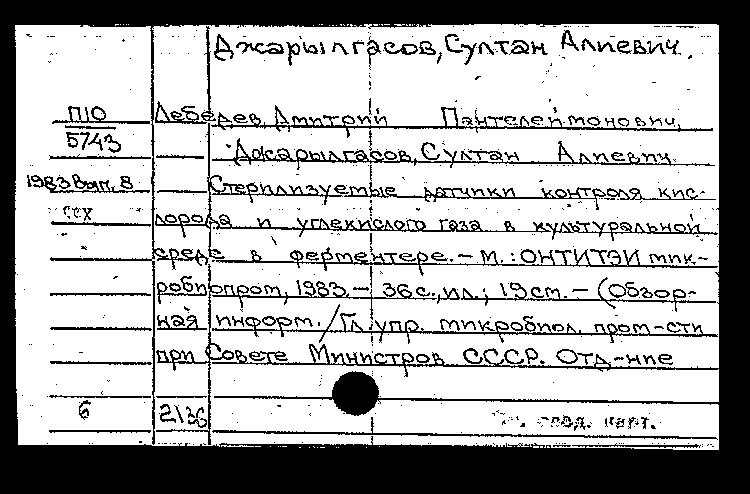 Джарылгасов, Султан Алиевич.
П10 Лебедев, Дмитрий Пантелеймонович,
5743 Джарылгасов, Султан Алиевич.
1983 Вып. 8 Стерилизуемые датчики контроля кис-
лорода и углекислого газа в культуральной
среде в ферментере. – М.: ОНТИТЭИ мик-
робиопром, 1983. – 36 с., ил.; 19 см. – (Обзор-
ная информ. / Гл. упр. микробиол. пром-сти
при Совете Министров СССР. Отд-ние
6 2136 карт.